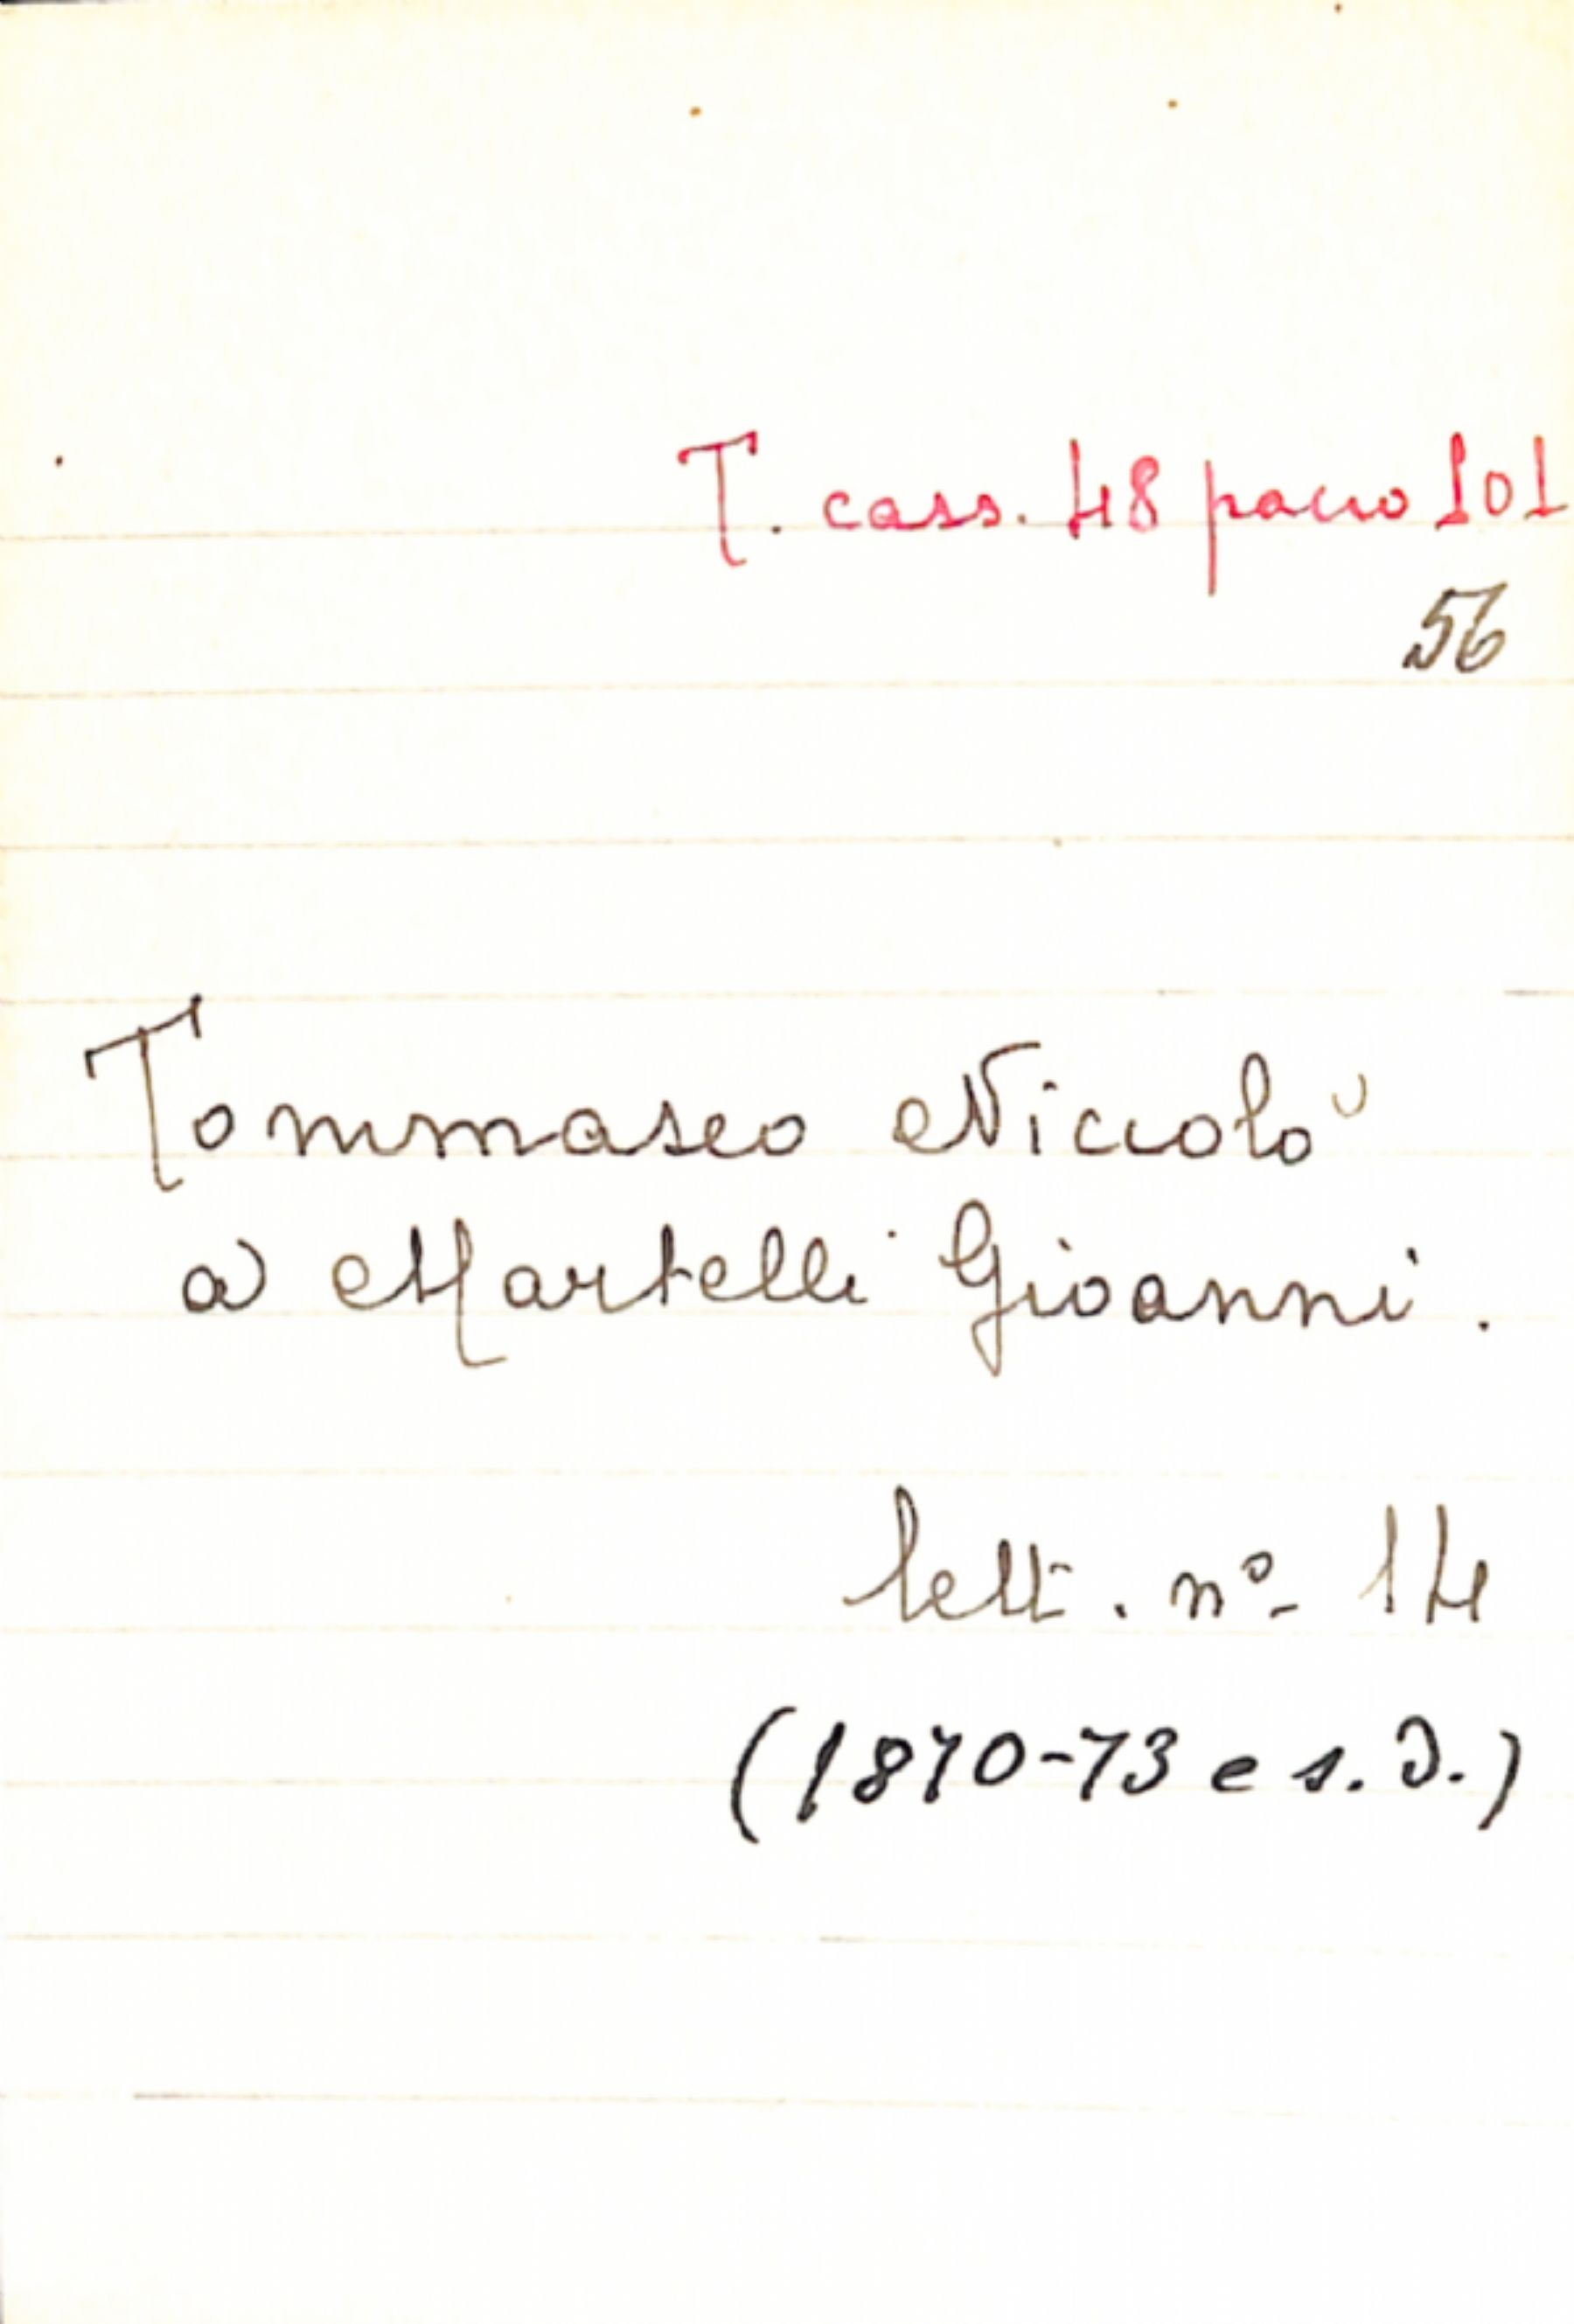 T. cass. 48 pacco 101
56
Tommaseo Niccolò
a Martelli Gioanni.
lett. nº 14
(1870-73 e s. d.)